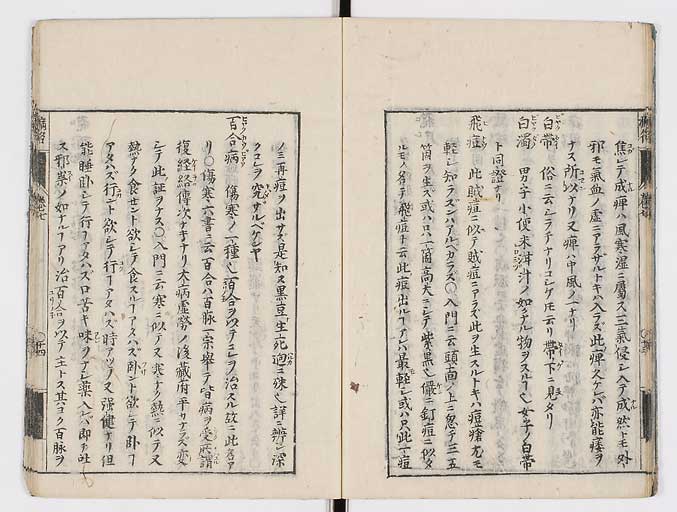 焦シテ成痺ハ風寒湿ニ屬ス三氣侵シ入テ成然トモ外
邪モ氣血ノ虚ニアラザルトキハ入ラズ此痺久ケレバ亦能痿ヲ
ナス所以ナリ又痺ハ中風ノ一ナリ
白帶 俗ニ云シラチナリコシケ𪜈云リ帶下ニ見タリ
白濁 男子小便米泔汁ノ如ナル物ヲスルヿ也女子ノ白帶
ト同證ナリ
飛痘 此賊痘ニ似テ賊痘ニアラズ此ヲ生スルトキハ痘瘡尤モ
軽シ知ラズンバアルベカラズ〇入門ニ云頭面ノ上ニ忽チ三五
箇ヲ生ズ或ハ只一箇高大ニシテ紫黒也儼ニ釘痘ニ似タ
ルモノ名テ飛痘ト云此痘出ルヿアレバ最軽シ或ハ只此一痘
ノミ再痘ヲ出サズ是知ス黒豆ノ生ニ死逈ニ殊也詳ニ辨シ深
クコレヲ究ザルベケンヤ
百合病 傷寒ノ一種也百合ヲ以テコレヲ治スル故ニ此名ア
リ〇傷寒六書ニ云百合ハ百脉一宗挙テ皆病ヲ受所謂
復経絡傳次ナキナリ大病虚勞ノ後臓府平ナラズ変
シテ此証ヲナス〇入門ニ云寒ニ似テ寒ナク熱ニ似テ又
熱ナク食セント欲シテ食スルヿアタハズ卧ント欲シテ卧ヿ
アタハズ行ント欲シテ行ヿアタハズ時アツテ又強健ナリ但
能睡卧シテ行ヿアタハズ口苦キ味ヲナシ薬入レバ即チ吐
ス邪祟ノ如ナルヿアリ治百合ヲ以テ主トス其ヨク百脉ヲ